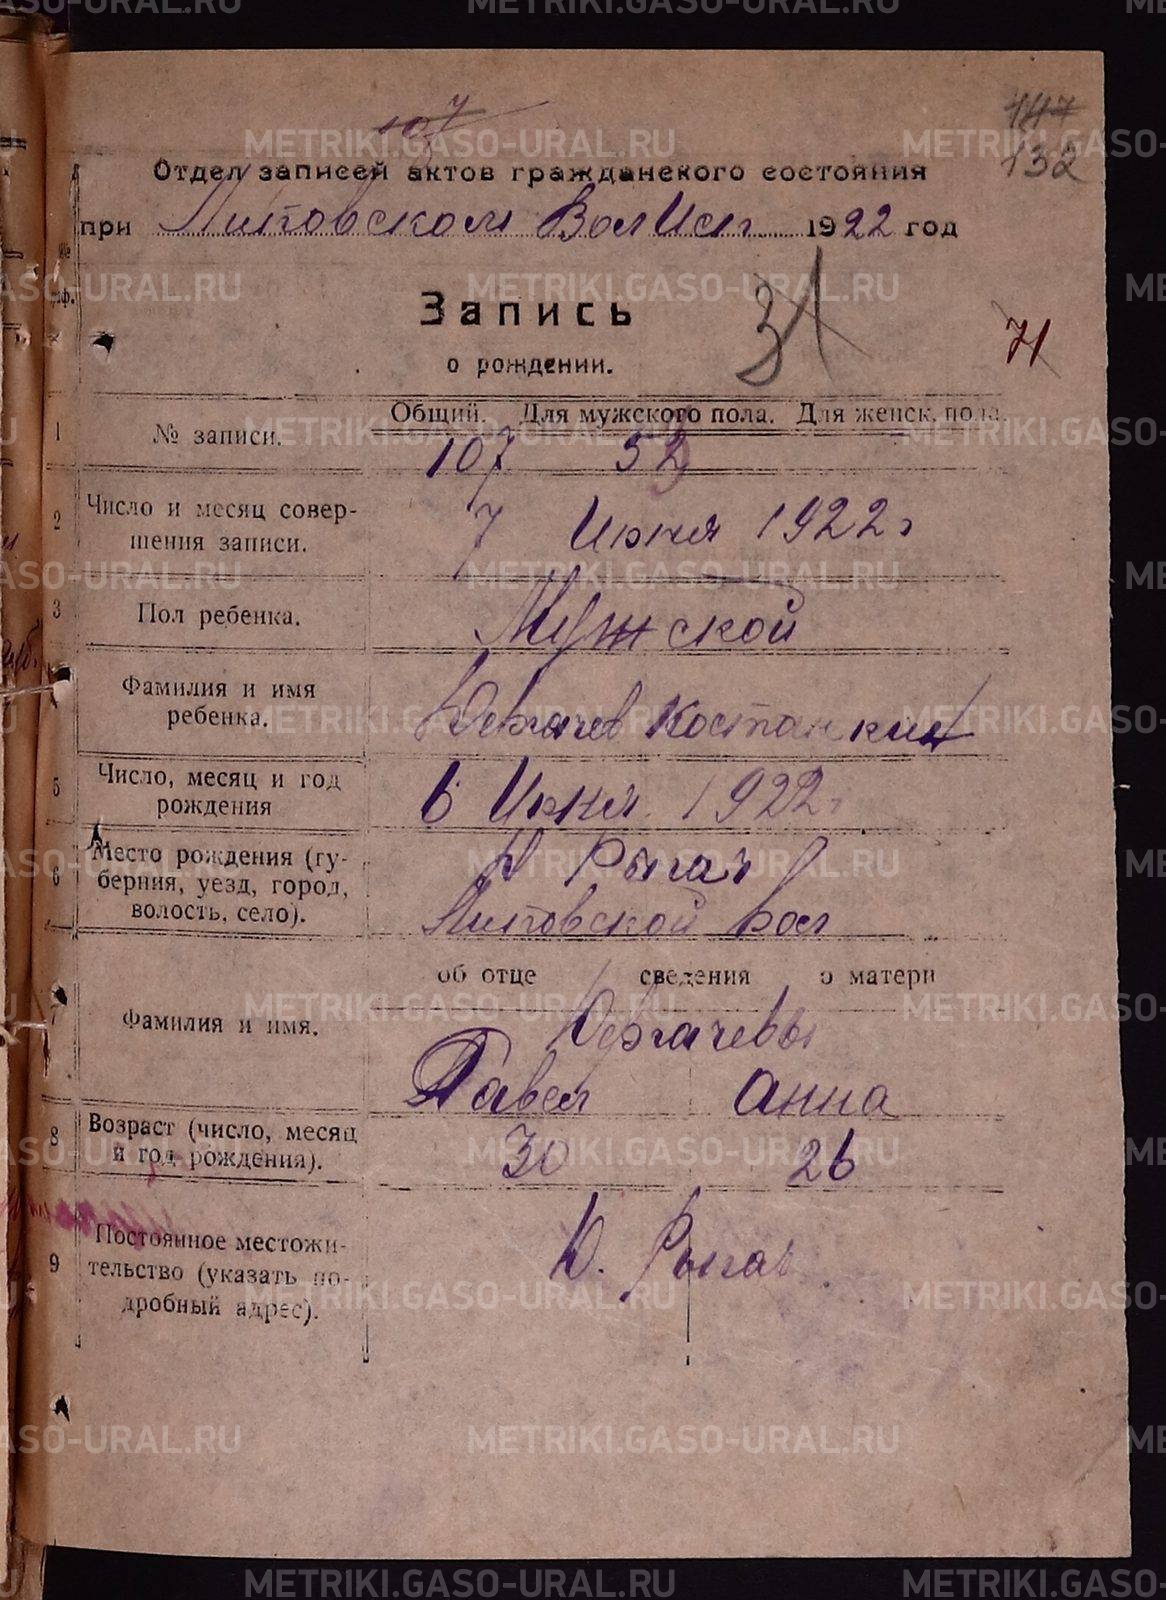 107
147
132
Отдел записей актов гражданского состояния
при Липовском ВолИсп. 1922 год
Запись
31
71
о рождении.
Общий. Для мужского пола. Для женск. пола.
1 № записи. 107 52
2 Число и месяц совершения записи. 7 Июня 1922 г
3 Пол ребенка. Мужской
Фамилия и имя
ребенка. Дергачев Костанкин
5 Число, месяц и год
рождения 6 Июня 1922 г
6 Место рождения (гу-
берния, уезд, город,
волость, село). Д Рычгач
Липовской вол
об отце сведения о матери
7 Фамилия и имя. Дергачевы
Павел Анна
8 Возраст (число, месяц
и год рождения). 30 26
9 Постоянное местожи-
тельство (указать по-
дробный адрес). Д.
METRIKI.GASO-URAL.RU